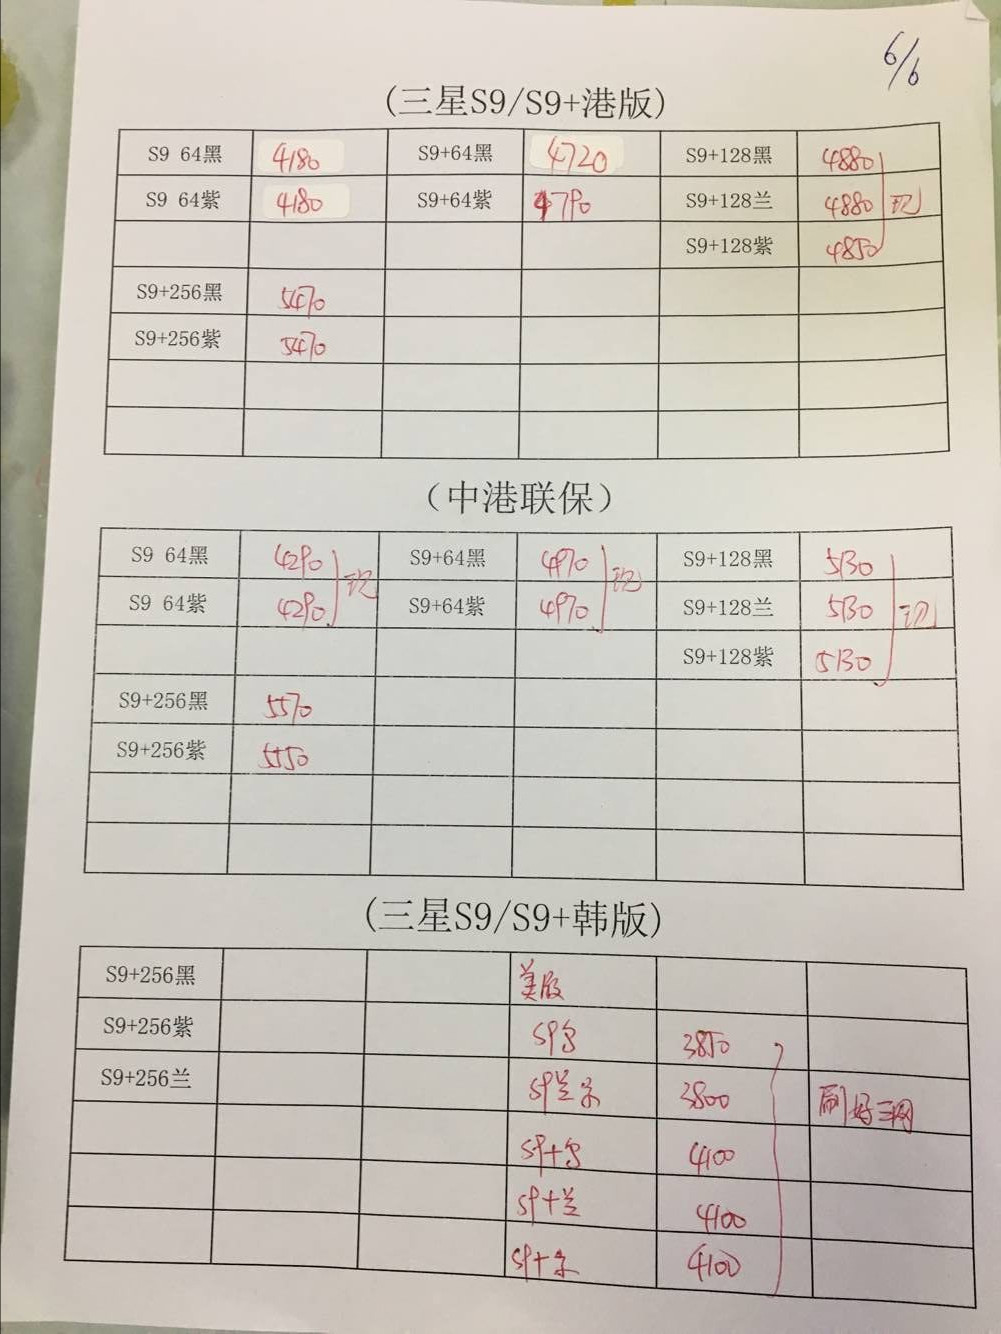 6/6
(三星S9/S9+港版)
S9 64黑 4180 S9+64黑 4720 S9+128黑 4880
S9 64紫 4180 S9+64紫 4790 S9+128兰 4880 现
S9+128紫 4850
S9+256黑 5470
S9+256紫 5470
(中港联保)
S9 64黑 4290 S9+64黑 4970 S9+128黑 5130
S9 64紫 4290 现 S9+64紫 4970 现 S9+128兰 5130 现
S9+128紫 5130
S9+256黑 5570
S9+256紫 5550
(三星S9/S9+韩版)
S9+256黑 美版
S9+256紫 S9 3850
S9+256兰 S9兰 3800 刷好三网
S9+ 4100
S9+兰 4100
S9+ 4100